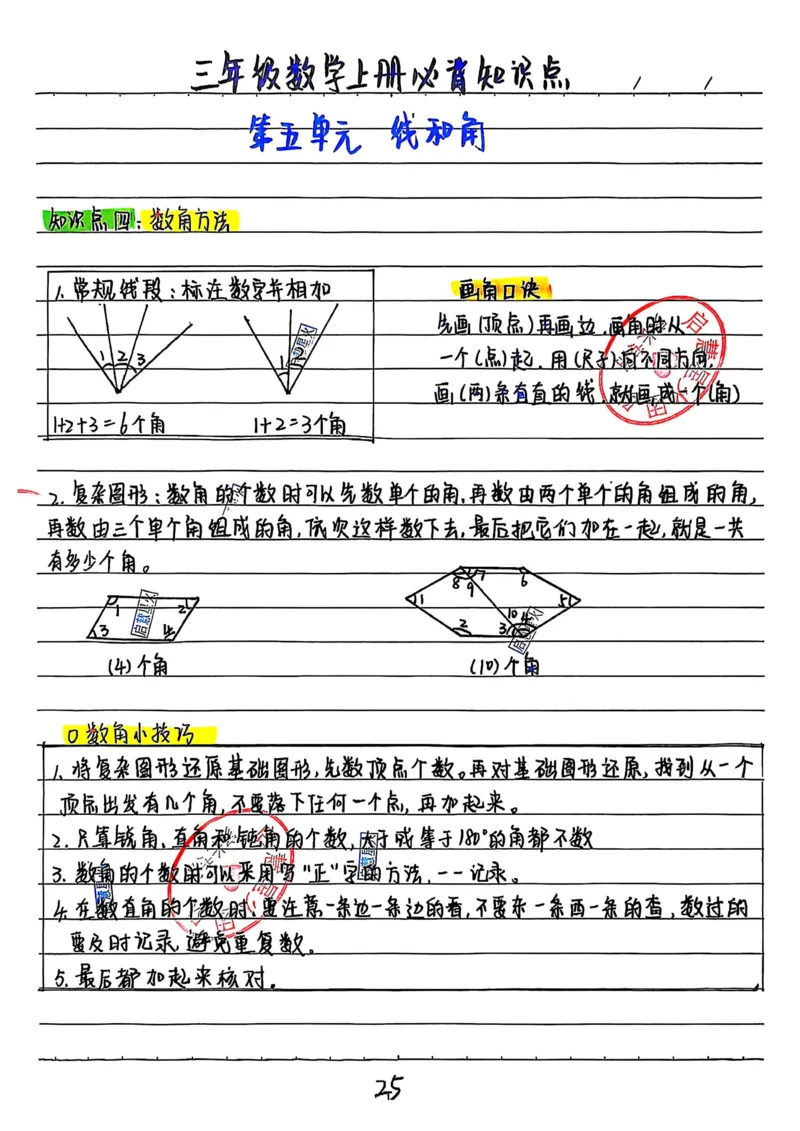 三年级数学上册必背知识点 / /
第五单元 线和角
知识点四:数角方法
1.常规线段:标注数字并相加
1 2 3
1
1+2+3=6个角
1+2=3个角
画角口诀
先画(顶点)再画边.画角时从
一个(点)起.用(尺子)向不同方向,
画(两)条有直的线.就画成一个(角)
2.复杂图形:数角的个数时可以先数单个的角,再数由两个单个的角组成的角,
再数由三个单个角组成的角,依次这样数下去,最后把它们加在一起,就是一共
有多少个角。
1 2
3 4
(4)个角
8 9 7 6
1 5
2 3 10 4
(10)个角
数角小技巧
1.将复杂图形还原基础图形,先数顶点个数。再对基础图形还原,找到从一个
顶点出发有几个角,不要落下任何一个点,再加起来。
2.只算锐角、直角和钝角的个数,大于或等于180°的角都不数
3.数角的个数时可以采用写"正"字的方法,一一记录。
4.在数直角的个数时,要注意一条边一条边的看,不要东一条西一条的查,数过的
要及时记录,避免重复数。
5.最后都加起来核对。
启慧星火
启慧星火
25